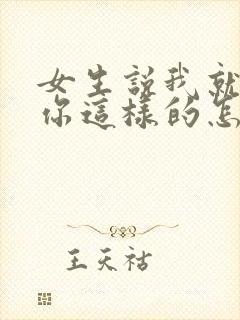 女生説我就
你這樣的怎
王天祜